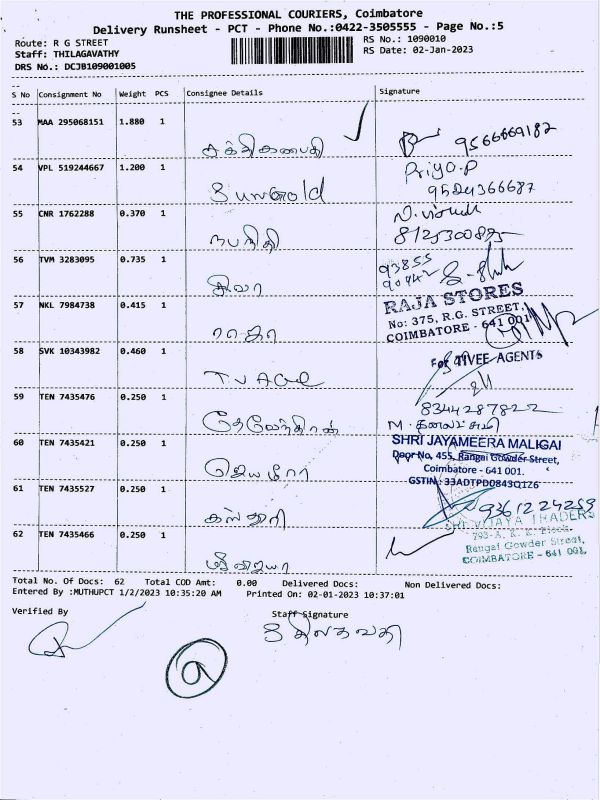 THE PROFESSIONAL COURIERS, Coimbatore
Delivery Runsheet - PCT - Phone No.:0422-3505555 - Page No.:5
Route: R G STREET
RS No.: 1090010
Staff: THILAGAVATHY
RS Date: 02-Jan-2023
DRS No.: DCJB109001005
S No Consignment No Weight PCS Consignee Details Signature
53 MAA 295068151 1.880 1
சக்திகணபதி 9566669182
54 VPL 519244667 1.200 1 Priya.P
Sungold 9524366687
55 CNR 1762288 0.370 1
நபநிதி
56 TVM 3283095 0.735 1 93855
சிவா
57 NKL 7984738 0.415 1 RAJA STORES
No: 375, R.G. STREET,
ராஜா COIMBATORE - 641 001
58 SVK 10343982 0.460 1 For TIVEE AGENTS
59 TEN 7435476 0.250 1 8344287822
M.
60 TEN 7435421 0.250 1 SHRI JAYAMEERA MALIGAI
Door No, 455, Rangai Gowder Street,
ஜெயமீரா Coimbatore - 641 001.
GSTIN: 33ADTPD0843Q1Z6
61 TEN 7435527 0.250 1
கஸ்தூரி 9361224259
62 TEN 7435466 0.250 1 SRI VIJAYA TRADERS
Rangai Gowder Street,
ஸ்ரீ விஜயா COIMBATORE - 641 001.
Total No. Of Docs: 62 Total COD Amt: 0.00 Delivered Docs: Non Delivered Docs:
Entered By :MUTHUPCT 1/2/2023 10:35:20 AM Printed On: 02-01-2023 10:37:01
Verified By Staff Signature
திலகவதி